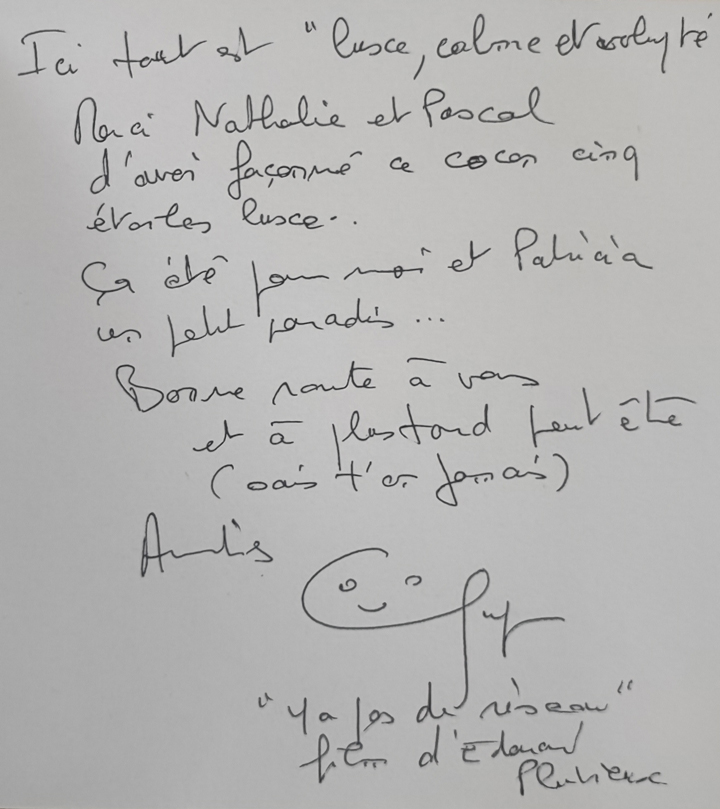 Ici tout est "lusce, calme et volupté
Merci Nathalie et Pascal
d'avoir façonné ce cocon cinq
étoiles lusce..
Ça été pour moi et Patricia
un petit paradis...
Bonne route à vous
et à plus tard peut être
(sais t'on jamais)
Amitiés
Guy
"Y a pas de réseau"
film d'Edouard
Pluvieux